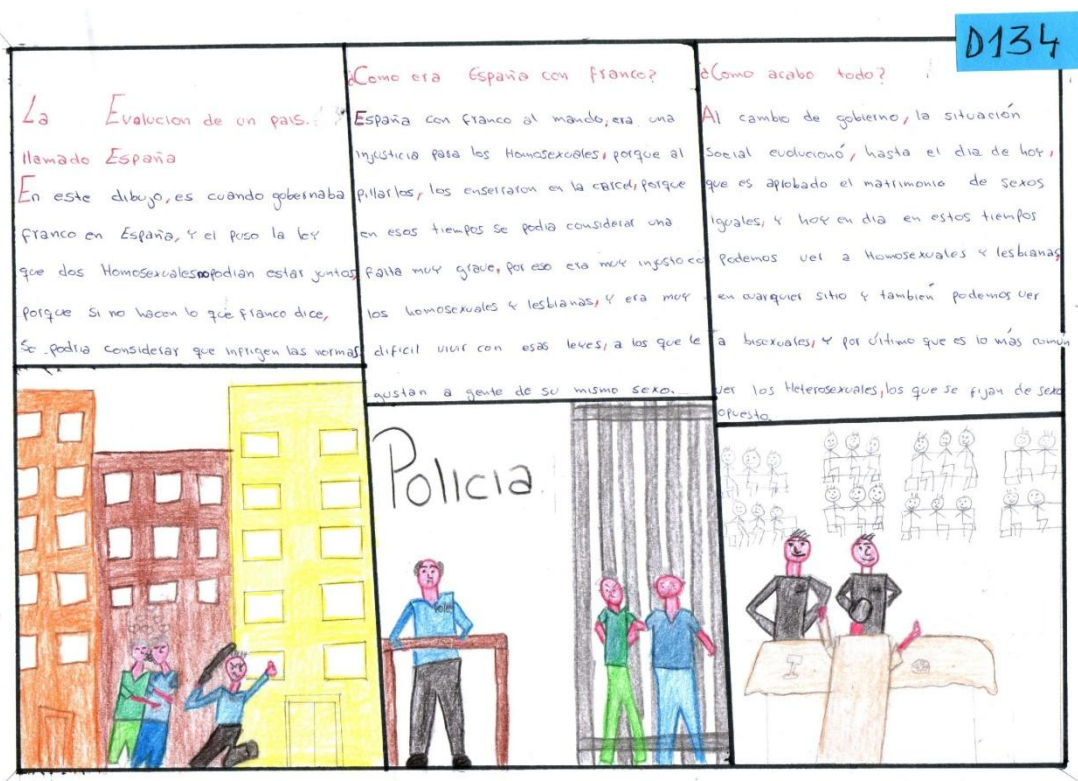 D134
La Evolucion de un pais.
llamado España
En este dibujo, es cuando gobernaba
franco en España, y el puso la ley
que dos Homosexuales no podian estar juntos,
porque si no hacen lo que franco dice,
se podria considerar que infrigen las normas
¿Como era España con franco?
España con franco al mando, era una
injusticia para los Homosexuales, porque al
pillarlos, los enserraron en la carcel, porque
en esos tiempos se podia considerar una
falta muy grave, por eso era muy injusto con
los homosexuales y lesbianas, y era muy
dificil vivir con esas leyes, a los que le
gustan a gente de su mismo sexo...
¿Como acabo todo?
Al cambio de gobierno, la situación
social evolucionó, hasta el dia de hoy,
que es aprobado el matrimonio de sexos
iguales, y hoy en dia en estos tiempos
podemos ver a Homosexuales y lesbianas,
en cuarquier sitio y también podemos ver
a bisexuales, y por último que es lo más común
ver los Heterosexuales, los que se fijan de sexo
opuesto.
Policia